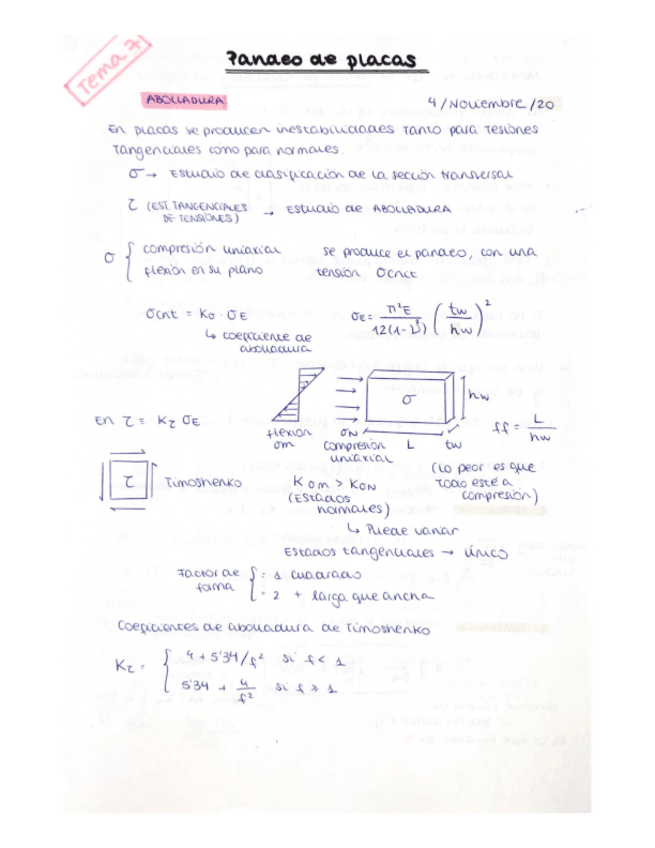 Tema 7
Pandeo de placas
ABOLLADURA
4/Noviembre/20
En placas se producen inestabilidades tanto para tesiones
tangenciales como para normales.
σ → Estudio de clasificación de la sección transversal
τ (EST. TANGENCIALES DE TENSIONES) → Estudio de ABOLLADURA
σ { compresión uniaxial
flexión en su plano
se produce el pandeo, con una
tensión σcrit
σcrit = Kσ · σE
↳ coeficiente de
abolladura
σE = π²E / 12(1-ν²) (tw / hw)²
σ
hw
En τ = Kτ σE
flexión
σm
σN
compresión
uniaxial
L
tw
ff = L / hw
τ
Timoshenko
Kσm > KσN
(Estados
normales)
(Lo peor es que
todo esté a
compresión)
↳ Puede variar
Estados tangenciales → único
Factor de
forma
{ = 1 cuadrado
= 2 + larga que ancha
Coeficientes de abolladura de Timoshenko
Kτ = { 4 + 5'34/f² si f < 1
5'34 + 4/f² si f ≥ 1